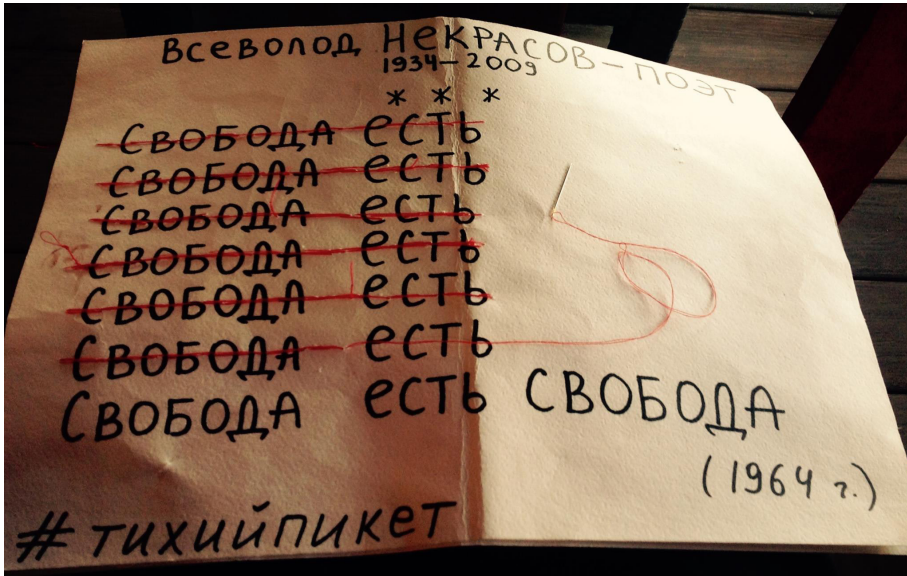 Всеволод Некрасов – поэт
1934–2009
* * *
Свобода есть
Свобода есть
Свобода есть
Свобода есть
Свобода есть
Свобода есть
Свобода есть свобода
(1964 г.)
#тихийпикет